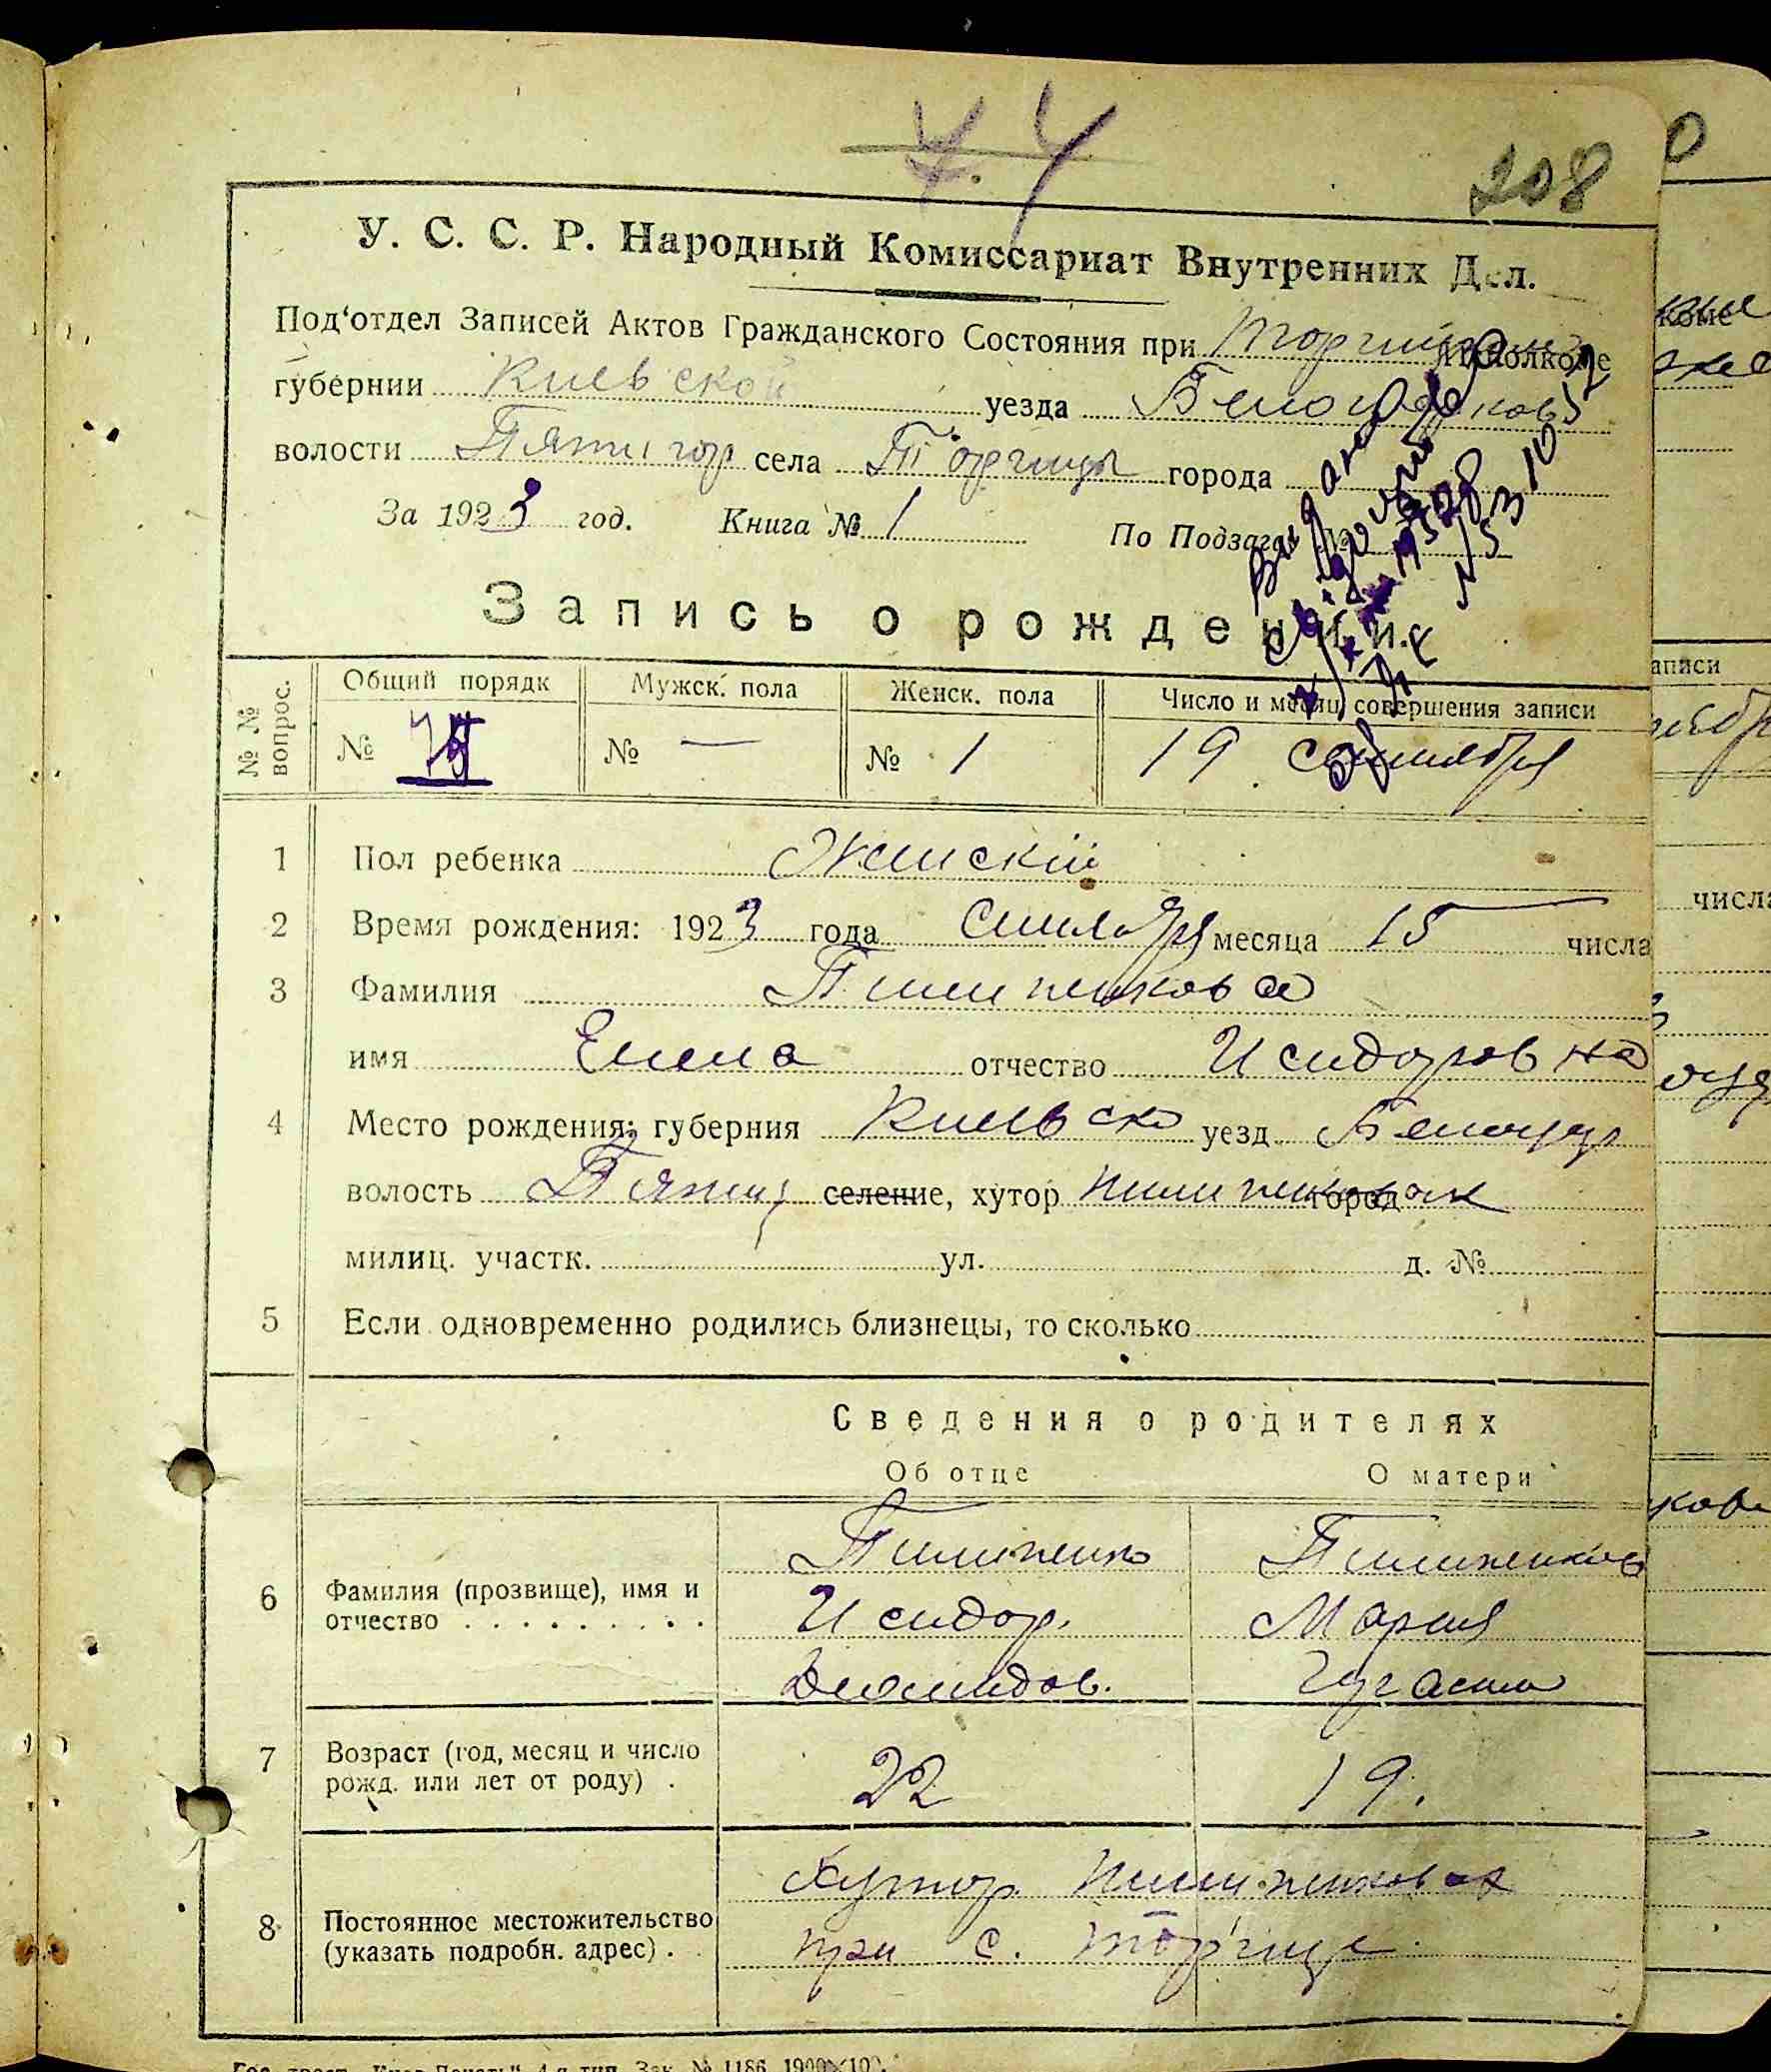 208
У. С. С. Р. Народный Комиссариат Внутренних Дел.
Под‘отдел Записей Актов Гражданского Состояния при Исполкоме
губернии Киевской уезда Белоцерков
волости Пятигор села Торчицы города
За 1923 год. Книга № 1 По Подзагсу №
Запись о рождении.
№ № вопрос.
Общий порядк Мужск. пола Женск. пола Число и месяц совершения записи
№ № — № 1 19 сентября
1 Пол ребенка Женскій
2 Время рождения: 1923 года Сентября месяца 15 числа
3 Фамилия Пилипенкова
имя Елена отчество Исидоровна
4 Место рождения: губерния Киевско уезд Белоцер
волость Пятиг селение, хутор Пилипенковах город
милиц. участк. ул. д. №
5 Если одновременно родились близнецы, то сколько
Сведения о родителях
Об отце О матери
6 Фамилия (прозвище), имя и отчество
Пилипенко Пилипенков
Исидор. Мария
Диомидов.
7 Возраст (год, месяц и число рожд. или лет от роду) . 22 19.
8 Постоянное местожительство (указать подробн. адрес) .
Хутор Пилипенковах
при с. Торчице.